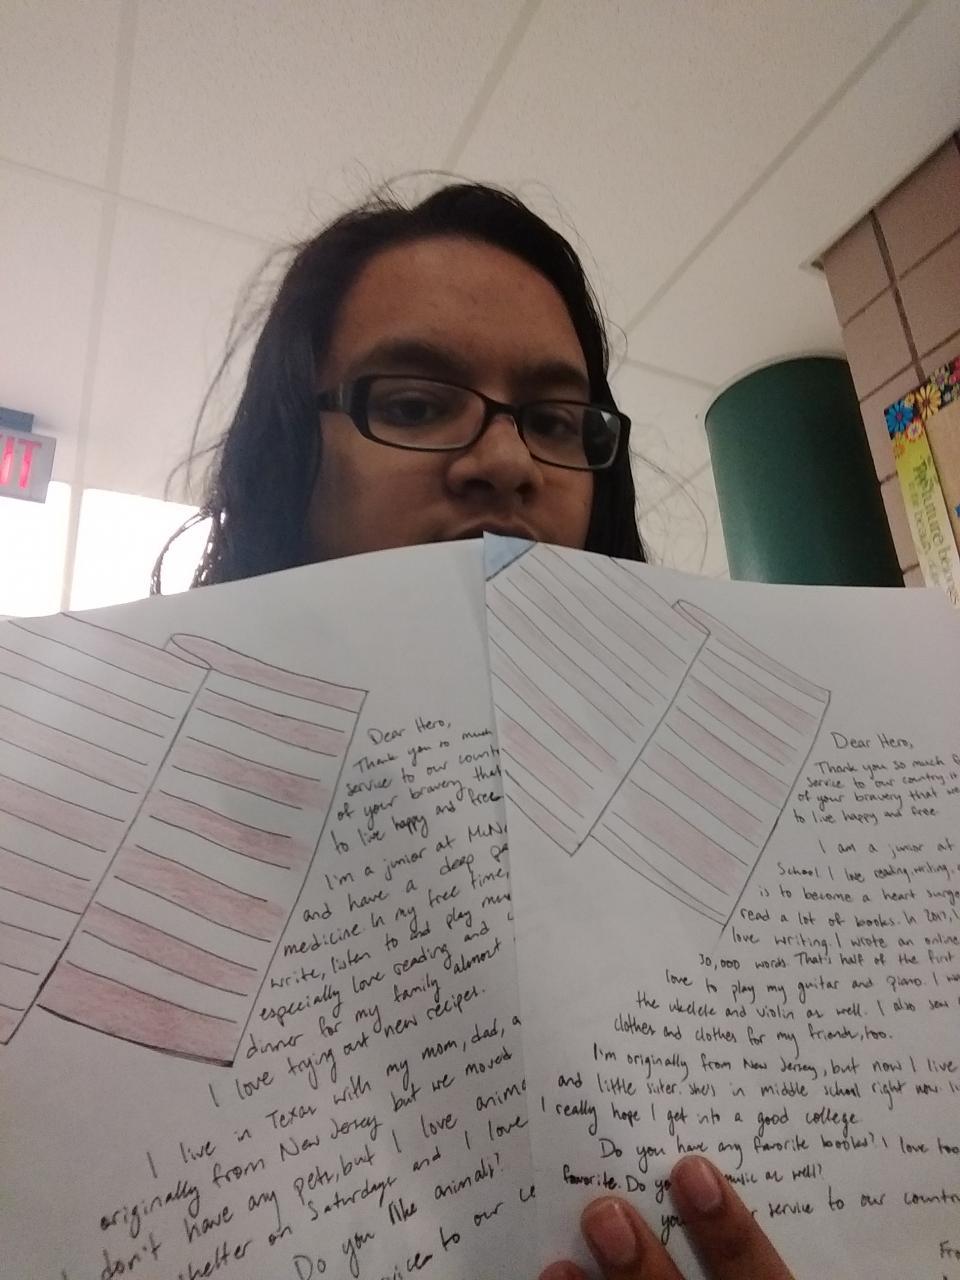 Dear Hero,
Thank you so much
service to our
of your bravery that
to live happy and free
I'm a junior at
and have a deep
medicine. In my free time,
write, listen to and play
especially love reading and
dinner for my family almost
I love trying out new recipes.
I live in Texas with my mom, dad, a
originally from New Jersey but we moved
don't have any pets, but I love
shelter on Saturdays and I love
Do you like animals?
to our
Dear Hero,
Thank you so much
service to our country
of your bravery that we
to live happy and free
I am a junior at
School. I love reading, writing,
is to become a heart
read a lot of books. In 2017, I
love writing. I wrote an online
30,000 words. That's half of the first
love to play my guitar and piano. I
the ukelele and violin as well. I also sew
clothes and clothes for my friends, too.
I'm originally from New Jersey, but now I live
and little sister. She's in middle school right now.
I really hope I get into a good college.
Do you have any favorite books? I love
favorite. Do music as well?
service to our
future